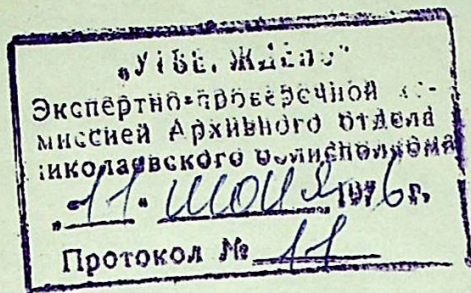 „УТВЕРЖДЕНО"
Экспертно-проверочной ко-
миссией Архивного отдела
николаевского облисполкома
„11" июня 1976 г.
Протокол № 11